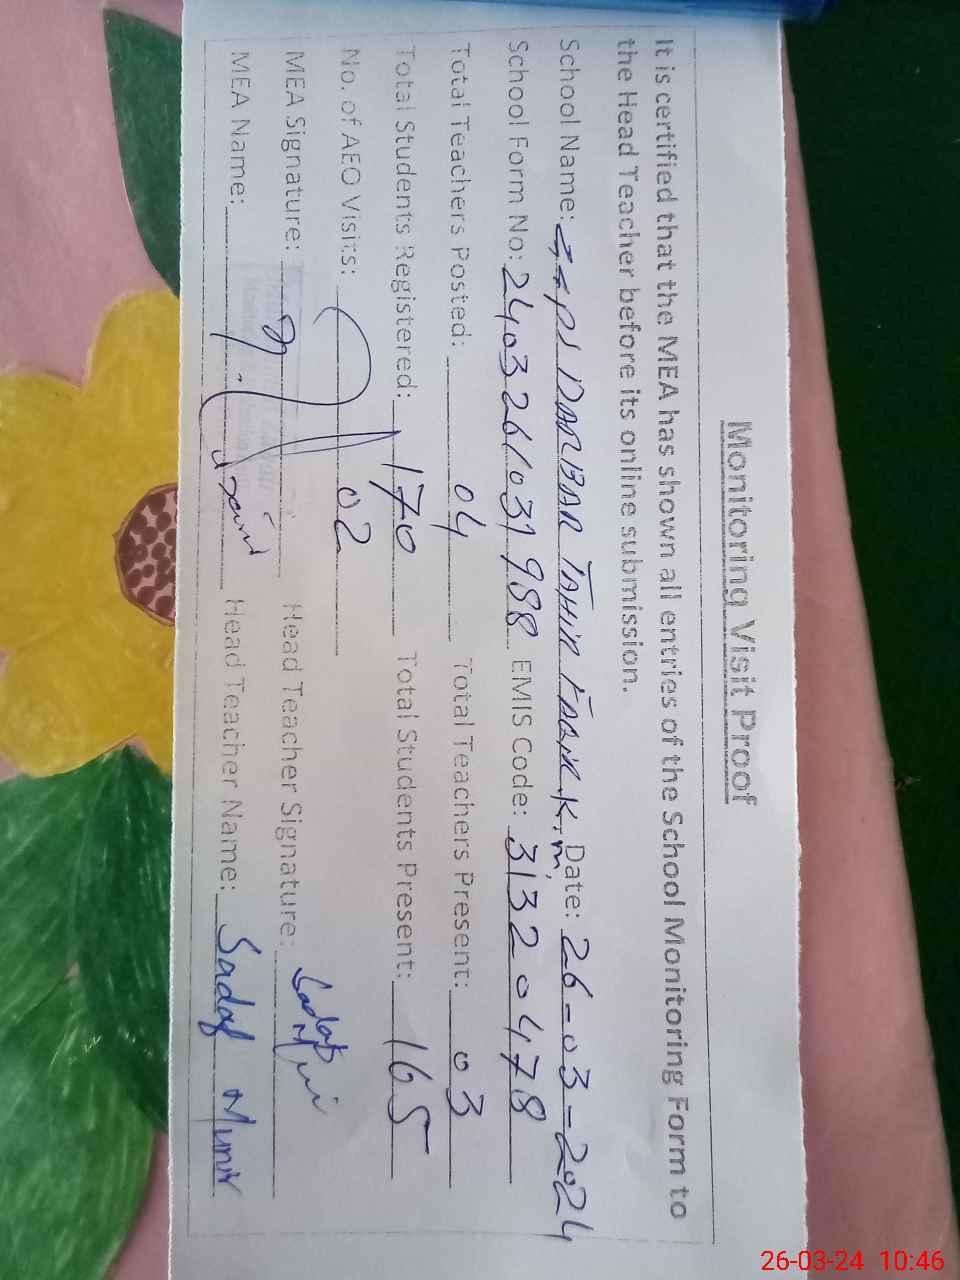 Monitoring Visit Proof
It is certified that the MEA has shown all entries of the School Monitoring Form to
the Head Teacher before its online submission.
School Name: DARBAR TAHIR K.m Date: 26-03-2024
School Form No: 2403261031988 EMIS Code: 31320478
Total Teachers Posted: 04 Total Teachers Present: 03
Total Students Registered: 170 Total Students Present: 165
No. of AEO Visits: 02
MEA Signature: Head Teacher Signature: Sadaf
MEA Name: Head Teacher Name: Sadaf Munir
26-03-24 10:46